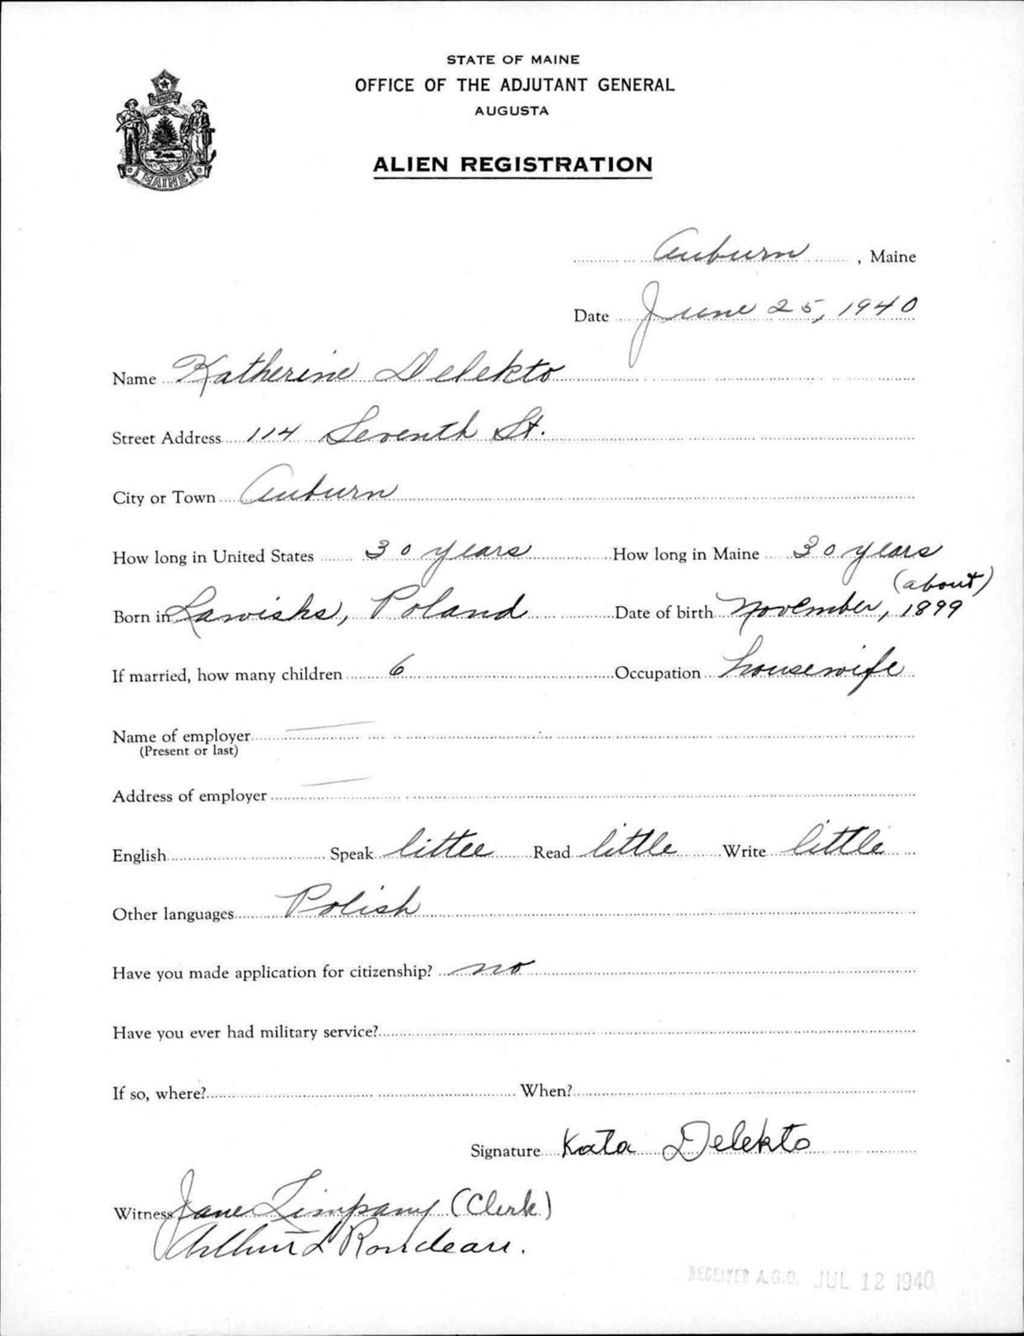 STATE OF MAINE
OFFICE OF THE ADJUTANT GENERAL
AUGUSTA
ALIEN REGISTRATION
MAINE
Auburn, Maine
Date June 25, 1940
Name Katherine Delekto
Street Address 114 Seventh St.
City or Town Auburn
How long in United States 30 years How long in Maine 30 years
(about)
Born in Lawisks, Poland Date of birth November, 1899
If married, how many children 6 Occupation housewife
Name of employer
(Present or last)
Address of employer
English Speak little Read little Write little
Other languages Polish
Have you made application for citizenship? no
Have you ever had military service?
If so, where? When?
Signature Kata Delekto
Witness Jane Timpany (Clerk)
Arthur L Rondeau.
RECEIVED A.G.O. JUL 12 1940